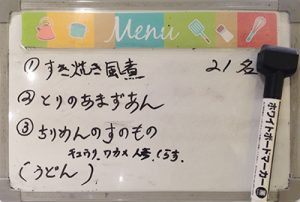 Menu
① すき焼き風煮 21名
② とりのあまずあん
③ ちりめんのすのもの
キュウリ、ワカメ 人参、しらす、
(うどん)
ホワイトボードマーカー